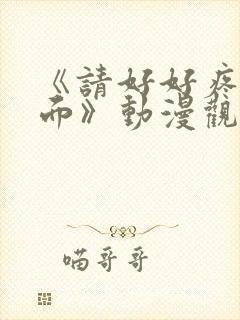 《請好好疼
而》動漫觀
喵哥哥